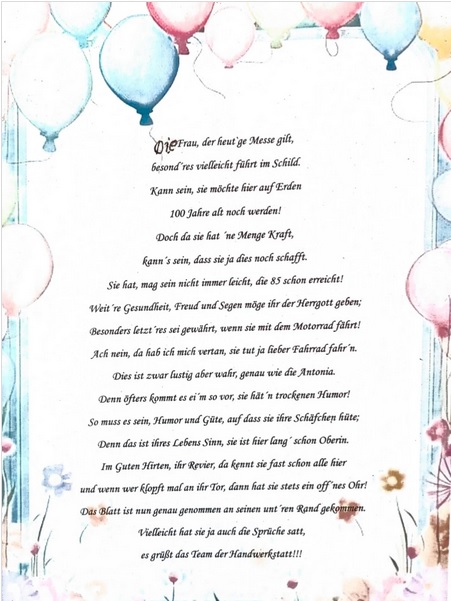 Die Frau, der heut´ge Messe gilt,
besond´res vielleicht führt im Schild.
Kann sein, sie möchte hier auf Erden
100 Jahre alt noch werden!
Doch da sie hat ´ne Menge Kraft,
kann´s sein, dass sie ja dies noch schafft.
Sie hat, mag sein nicht immer leicht, die 85 schon erreicht!
Weit´re Gesundheit, Freud und Segen möge ihr der Herrgott geben;
Besonders letzt´res sei gewährt, wenn sie mit dem Motorrad fährt!
Ach nein, da hab ich mich vertan, sie tut ja lieber Fahrrad fahr´n.
Dies ist zwar lustig aber wahr, genau wie die Antonia.
Denn öfters kommt es ei´m so vor, sie hät´n trockenen Humor!
So muss es sein, Humor und Güte, auf dass sie ihre Schäfchen hüte;
Denn das ist ihres Lebens Sinn, sie ist hier lang´ schon Oberin.
Im Guten Hirten, ihr Revier, da kennt sie fast schon alle hier
und wenn wer klopft mal an ihr Tor, dann hat sie stets ein off´nes Ohr!
Das Blatt ist nun genau genommen an seinen unt´ren Rand gekommen.
Vielleicht hat sie ja auch die Sprüche satt,
es grüßt das Team der Handwerkstatt!!!